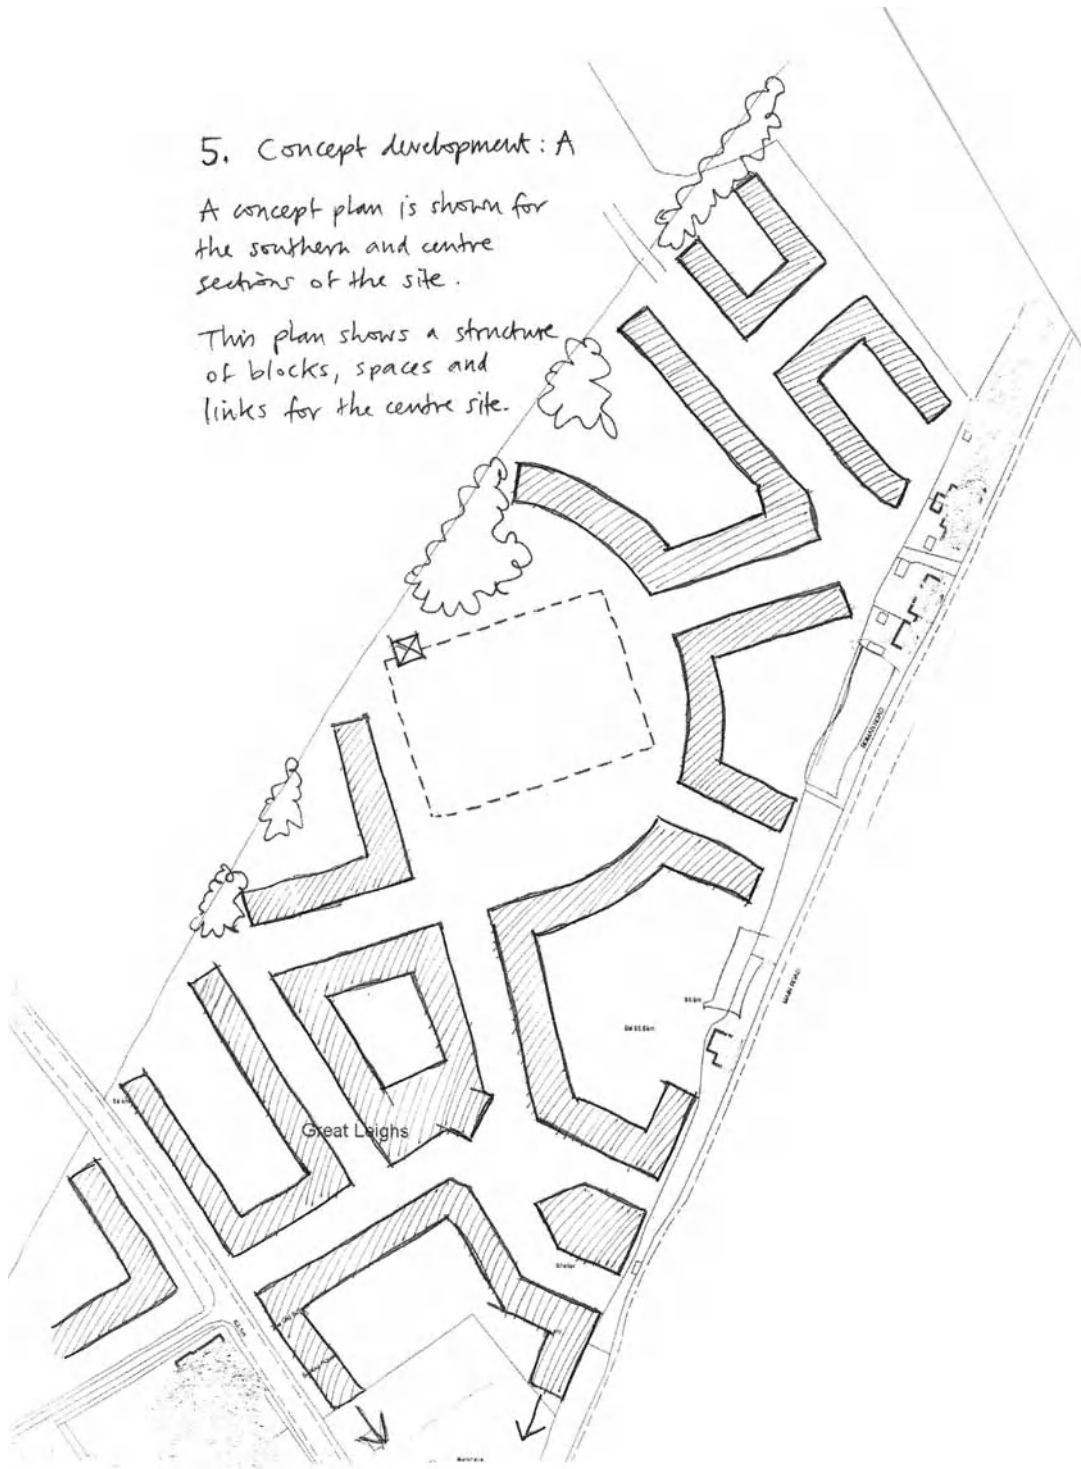 5. Concept development: A
A concept plan is shown for
the southern and centre
sections of the site.
This plan shows a structure
of blocks, spaces and
links for the centre site.
ROMAN ROAD
MAIN ROAD
Great Leighs